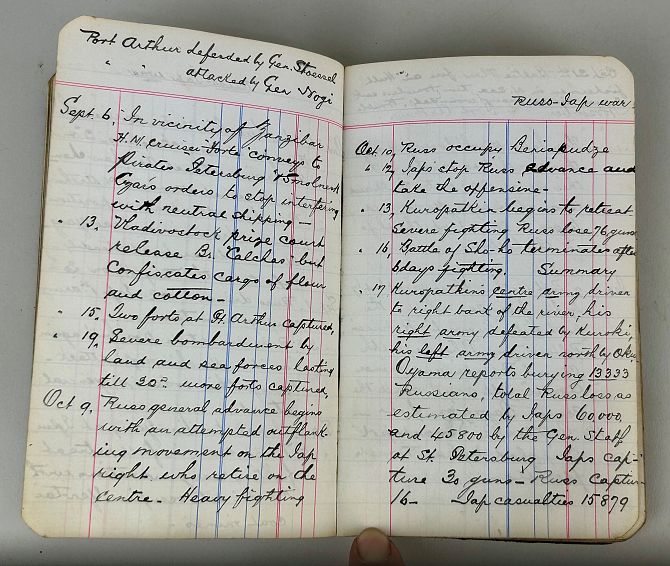 Port Arthur defended by Gen. Stoessel
" " attacked by Gen Nogi
Sept. 6, In vicinity of Zanzibar
H.M. cruiser Forte conveys to
pirates Petersburg & Smolensk
Czars orders to stop interfering
with neutral shipping —
" 13, Vladivostock prize court
release Br. "Calchas" but
confiscates cargo of flour
and cotton —
" 15, Two forts at Pt. Arthur captured,
" 19, Severe bombardment by
land and sea forces lasting
till 20th more forts captured,
Oct 9, Russ general advance begins
with an attempted outflank-
ing movement on the Jap
right who retire on the
centre — Heavy fighting
Russ-Jap war
Oct. 10, Russ occupy
" 12, Japs stop Russ advance and
take the offensive —
" 13, Kuropatkin begins to retreat
Severe fighting Russ lose 76 guns
" 16, Battle of Sha-ho terminates after
6 days fighting. Summary
" 17 Kuropatkins centre army driven
to right bank of the river, his
right army defeated by Kuroki,
his left army driven north by Oku,
Oyama reports burying 13333
Russians, total Russ loss as
estimated by Japs 60,000
and 45800 by the Gen. Staff
at St. Petersburg Japs cap-
ture 30 guns — Russ captur-
16 — Jap casualties 15879